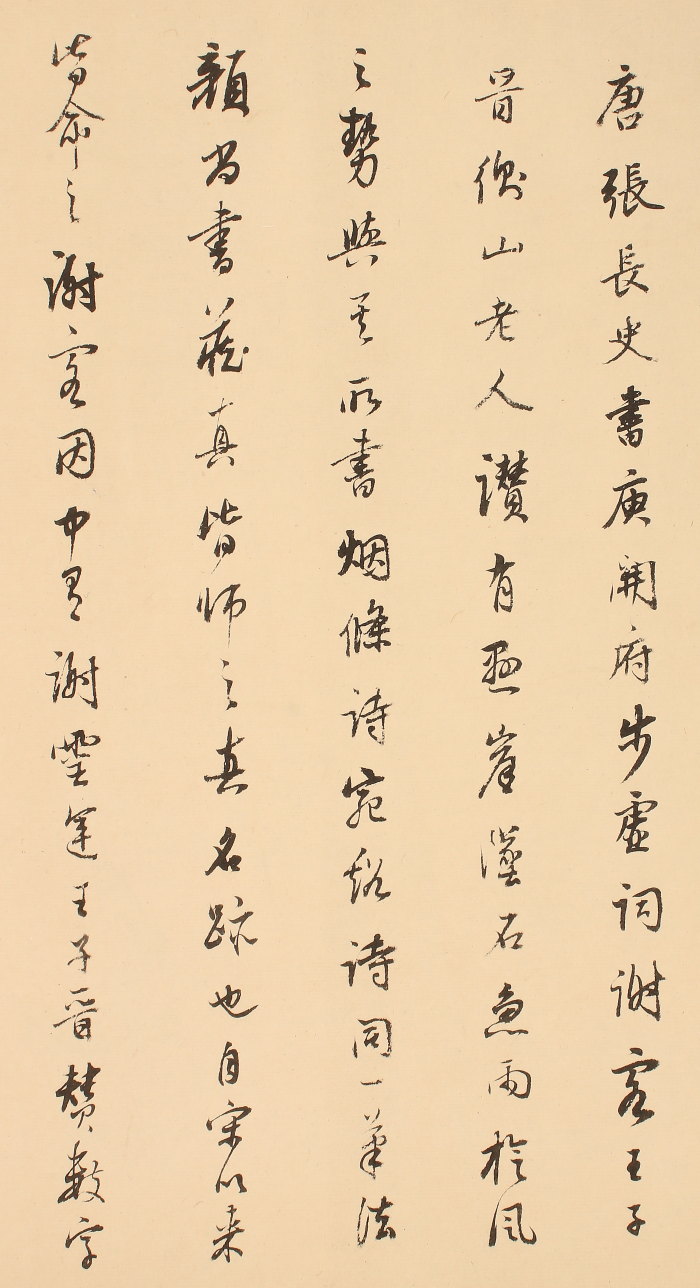 唐張長史書庾開府步虛詞謝客王子
晉衡山老人讚有懸崖墜石急雨旋風
之勢與其所書烟條詩宛谿詩同一筆法
顏尚書藏真皆師之真名跡也自宋以來
皆命之謝客因中有謝靈運王子晉贊數字